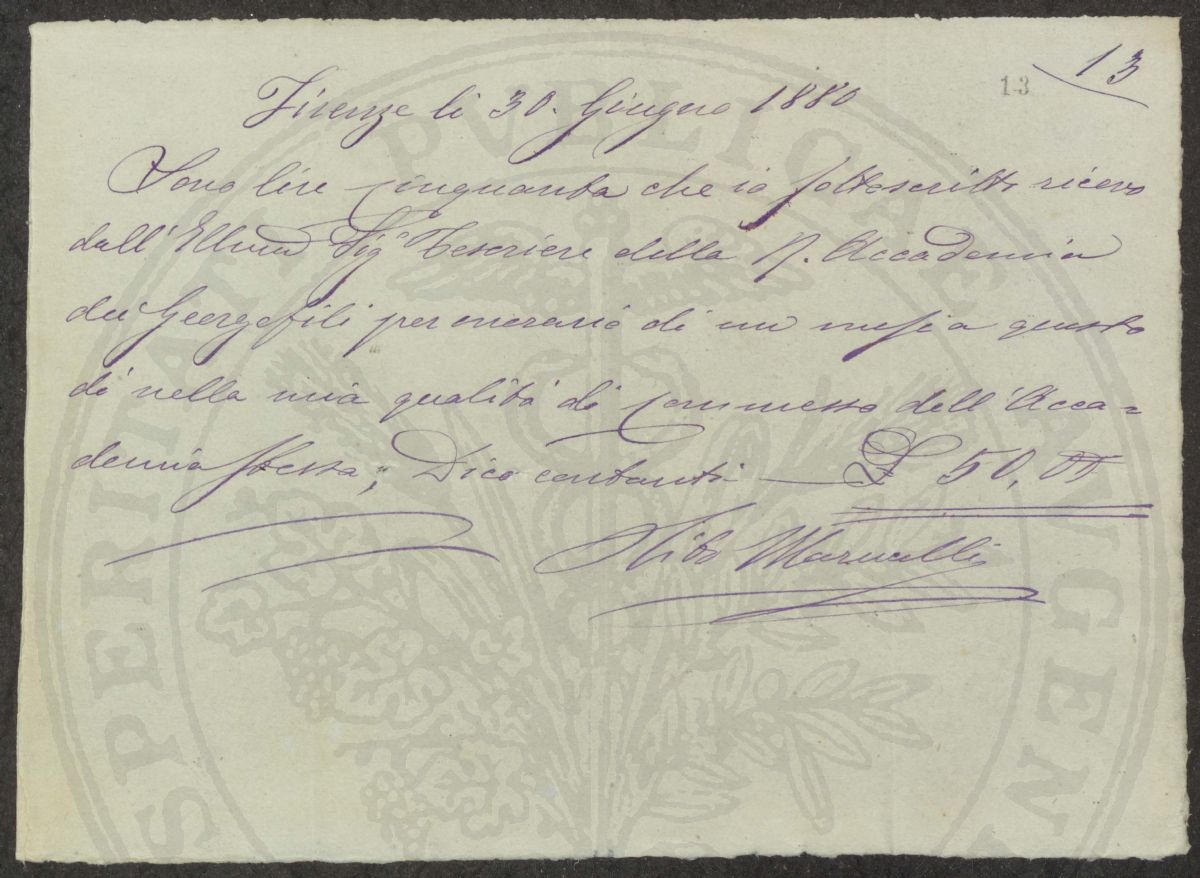 13
13
Firenze li 30. Giugno 1880
Sono lire cinquanta che io sottoscritto ricevo
dall' Illmo Sigr Tesoriere della R. Accademia
dei Georgofili per onorario di un mese a questo
dì nella mia qualità di Commesso dell' Acca=
demia stessa; Dico contanti — £ 50,00
Marucelli
PROSPERITATI PVBLICAE AVGEN